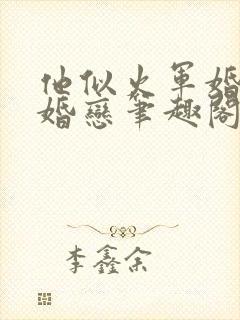 他似火军婚
婚恋笔趣阁
李鑫余